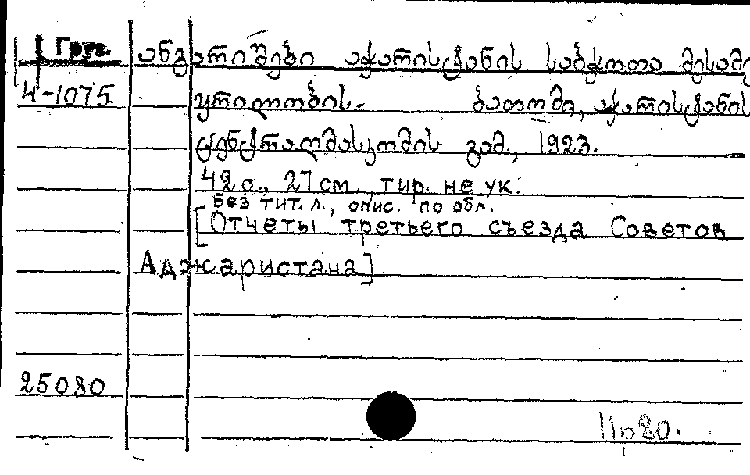 Груз. ანგარიშები აჭარისტანის საბჭოთა მესამე
4-1075 ყრილობის.- ბათომი, აჭარისტანის
ცენტრალმასკომის გამ., 1923.
42 с., 27 см., тир. не ук.
Без тит. л., опис. по обл.
[Отчеты третьего съезда Советов
Аджаристана]
25080